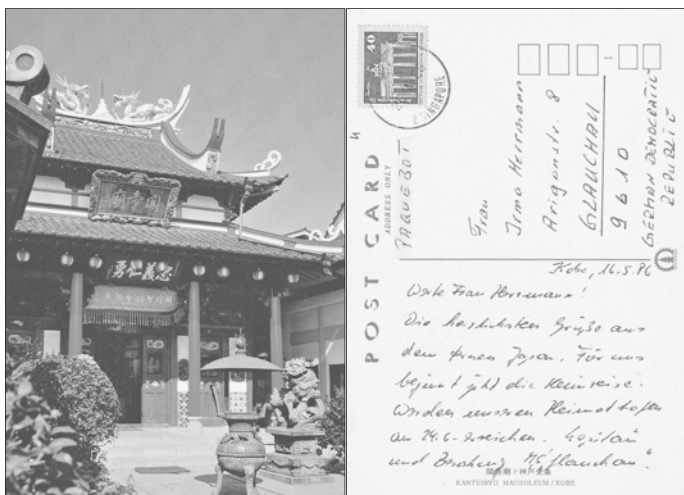 忠義仁勇
40
SINGAPORE
POST CARD
ADDRESS ONLY
PAQUEBOT
Frau
Irma Herrmann
Arigonstr. 8
GLAUCHAU
9610
GERMAN DEMOCRATIC
REPUBLIC
Kobe, 16.5.86
Werte Frau Herrmann!
Die herzlichsten Grüße aus
dem fernen Japan. Für uns
beginnt jetzt die Heimreise.
Werden unseren Heimathafen
am 24.6. erreichen. Kapitän
und Besatzung MS „Glauchau“.
KANTEIBYO MAUSOLEUM / KOBE